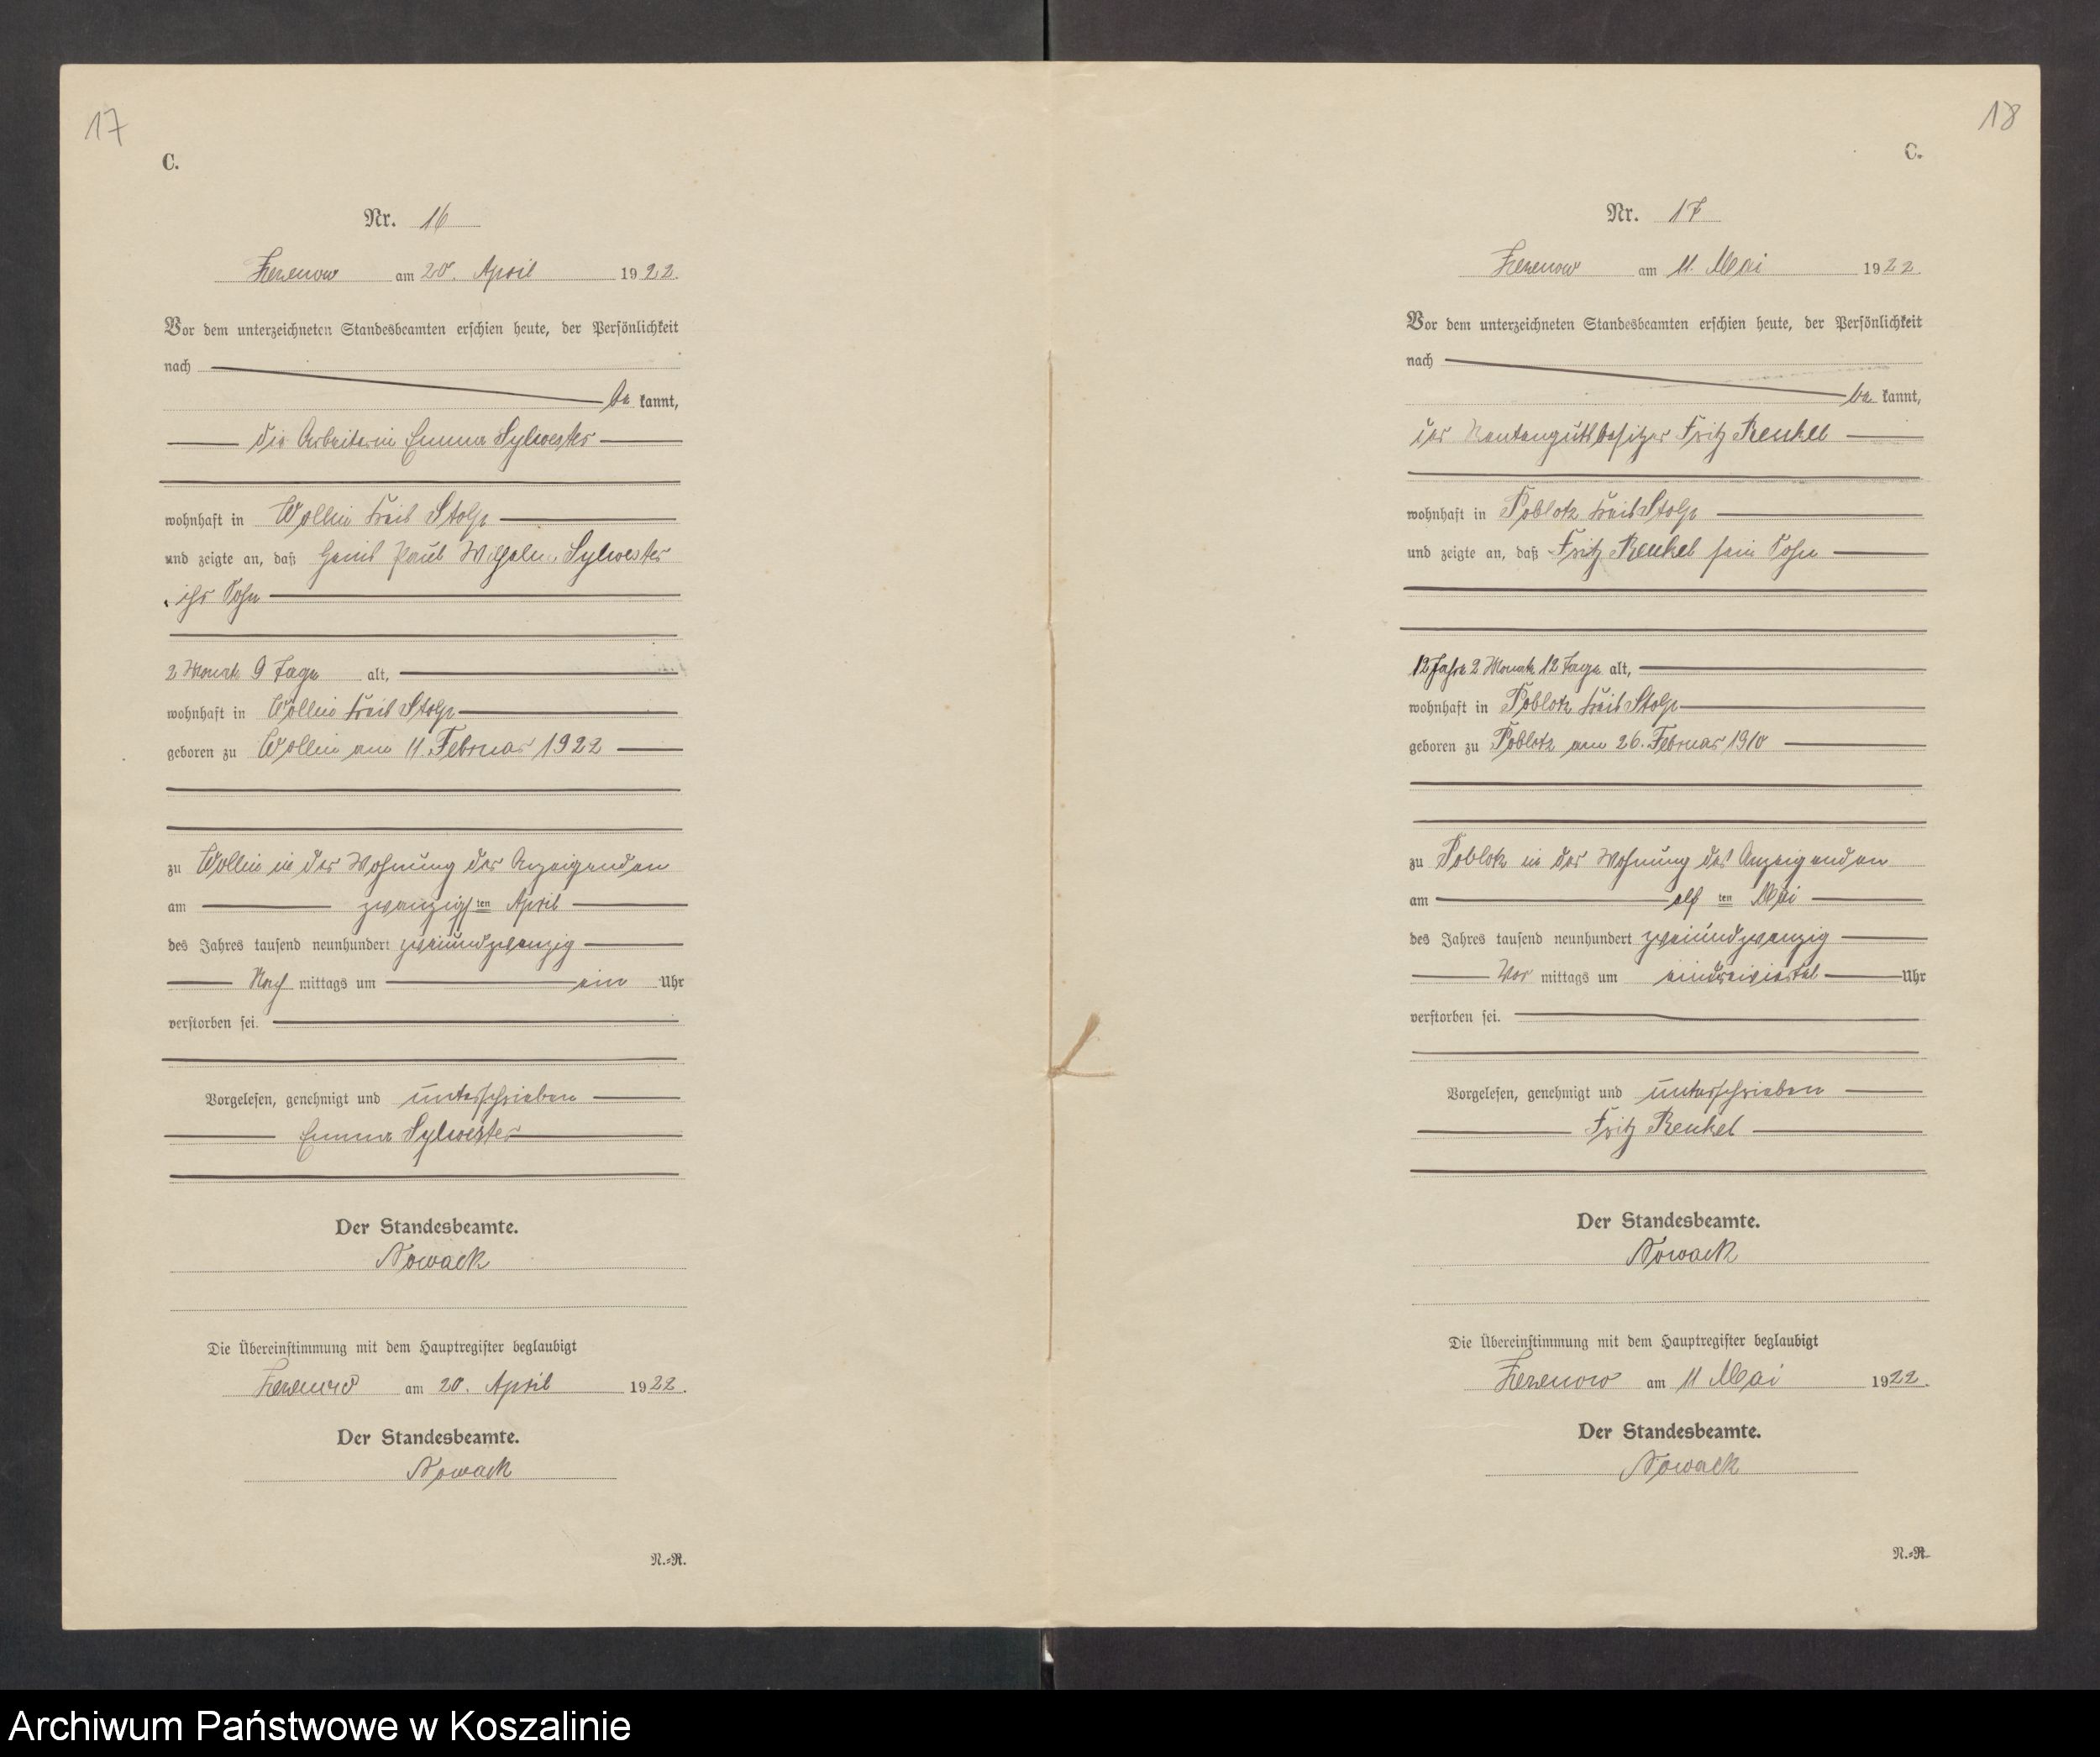 17
C.
Nr. 16
Zezenow am 20. April 1922.
Vor dem unterzeichneten Standesbeamten erschien heute, der Persönlichkeit
nach
be kannt,
die Arbeiterin Emma Sylwester
wohnhaft in Wollin Kreis Stolp
und zeigte an, daß Paul Wilhelm Sylwester
ihr Sohn
2 Monate 9 Tage alt,
wohnhaft in Wollin Kreis Stolp
geboren zu Wollin am 11. Februar 1922
zu Wollin in der Wohnung der Anzeigenden
am zwanzigsten April
des Jahres tausend neunhundert zweiundzwanzig
Nach mittags um ein Uhr
verstorben sei.
Vorgelesen, genehmigt und unterschrieben
Emma Sylwester
Der Standesbeamte.
Nowack
Die Übereinstimmung mit dem Hauptregister beglaubigt
Zezenow am 20. April 1922.
Der Standesbeamte.
Nowack
N.=R.
18
C.
Nr. 17
Zezenow am 11. Mai 1922.
Vor dem unterzeichneten Standesbeamten erschien heute, der Persönlichkeit
nach
be kannt,
der Rentengutsbesitzer Fritz Renkel
wohnhaft in Poblotz Kreis Stolp
und zeigte an, daß Fritz Renkel sein Sohn
12 Jahre 2 Monate 12 Tage alt,
wohnhaft in Poblotz Kreis Stolp
geboren zu Poblotz am 26. Februar 1910
zu Poblotz in der Wohnung des Anzeigenden
am elf ten Mai
des Jahres tausend neunhundert zweiundzwanzig
Vor mittags um eindreiviertel Uhr
verstorben sei.
Vorgelesen, genehmigt und unterschrieben
Fritz Renkel
Der Standesbeamte.
Nowack
Die Übereinstimmung mit dem Hauptregister beglaubigt
Zezenow am 11 Mai 1922.
Der Standesbeamte.
Nowack
N.=R.
Archiwum Państwowe w Koszalinie